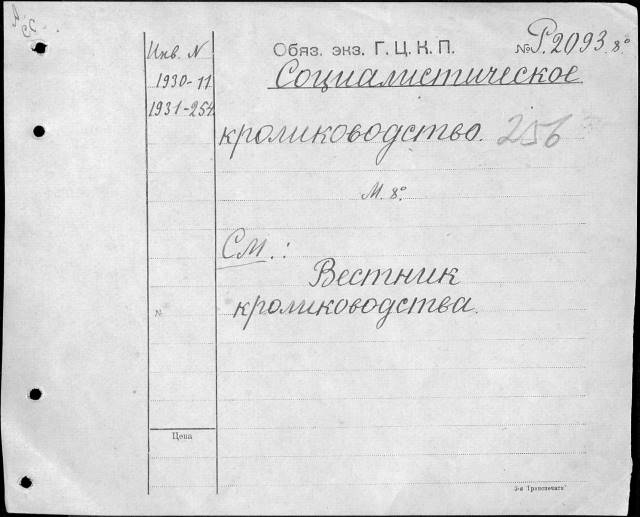 Инв. N
1930-11
1931-254
Обяз. экз. Г. Ц. К. П.
№ Р.2093.8°
Социалистическое
кролиководство. 256
М. 8°
См.:
Вестник
кролиководства.
№
Цена
3-я Транспечать